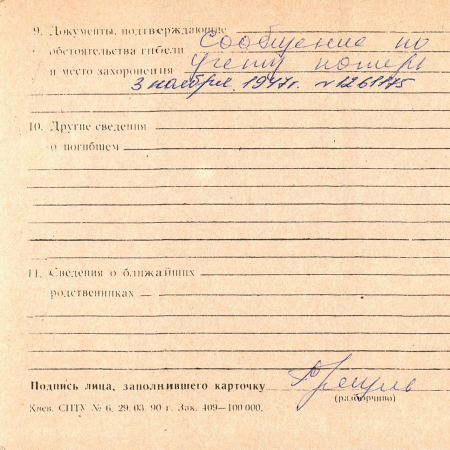 9. Документы, подтверждающие
обстоятельства гибели Сообщение по
и место захоронения учету потерь
3 ноября 1947г. №1261175
10. Другие сведения
о погибшем
11. Сведения о ближайших
родственниках
Подпись лица, заполнившего карточку
(разборчиво)
Киев. СПТУ № 6. 29. 03. 90 г. Зак. 409—100 000.